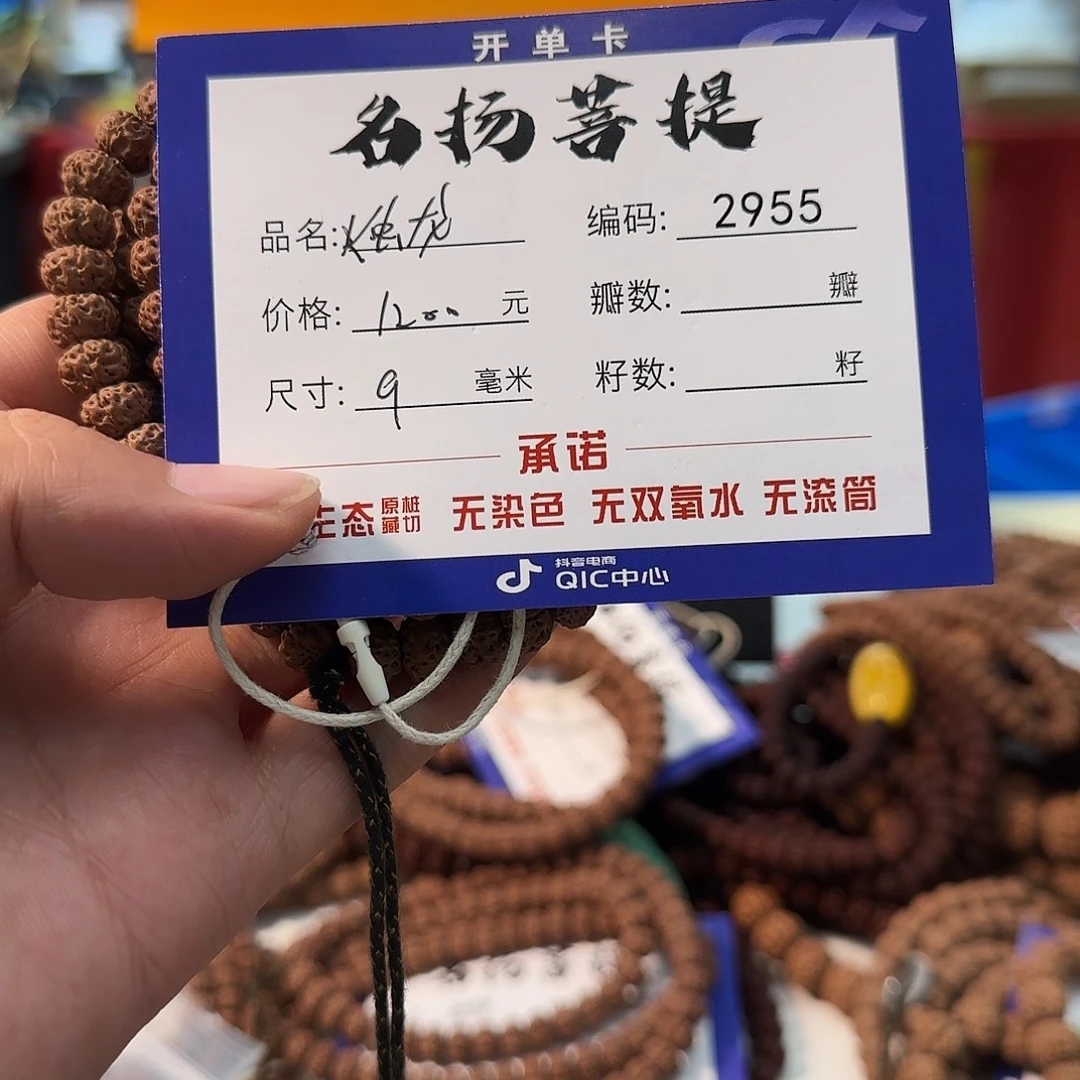 开单卡
名扬菩提
品名: 烛龙 编码: 2955
价格: 1200 元 瓣数: 瓣
尺寸: 9 毫米 籽数: 籽
承诺
生态 原桩藏切 无染色 无双氧水 无滚筒
抖音电商
QIC中心